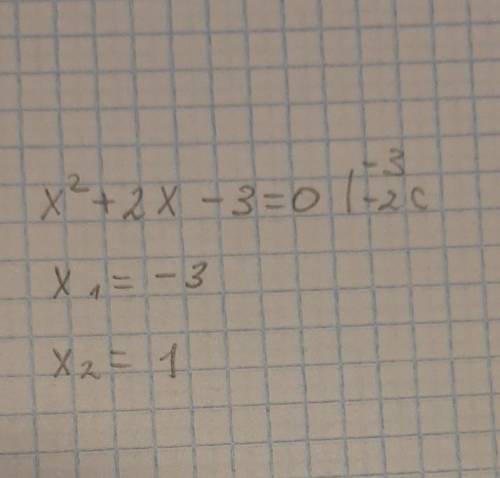 x²+2x-3=0 |-3 -2c
x₁=-3
x₂=1